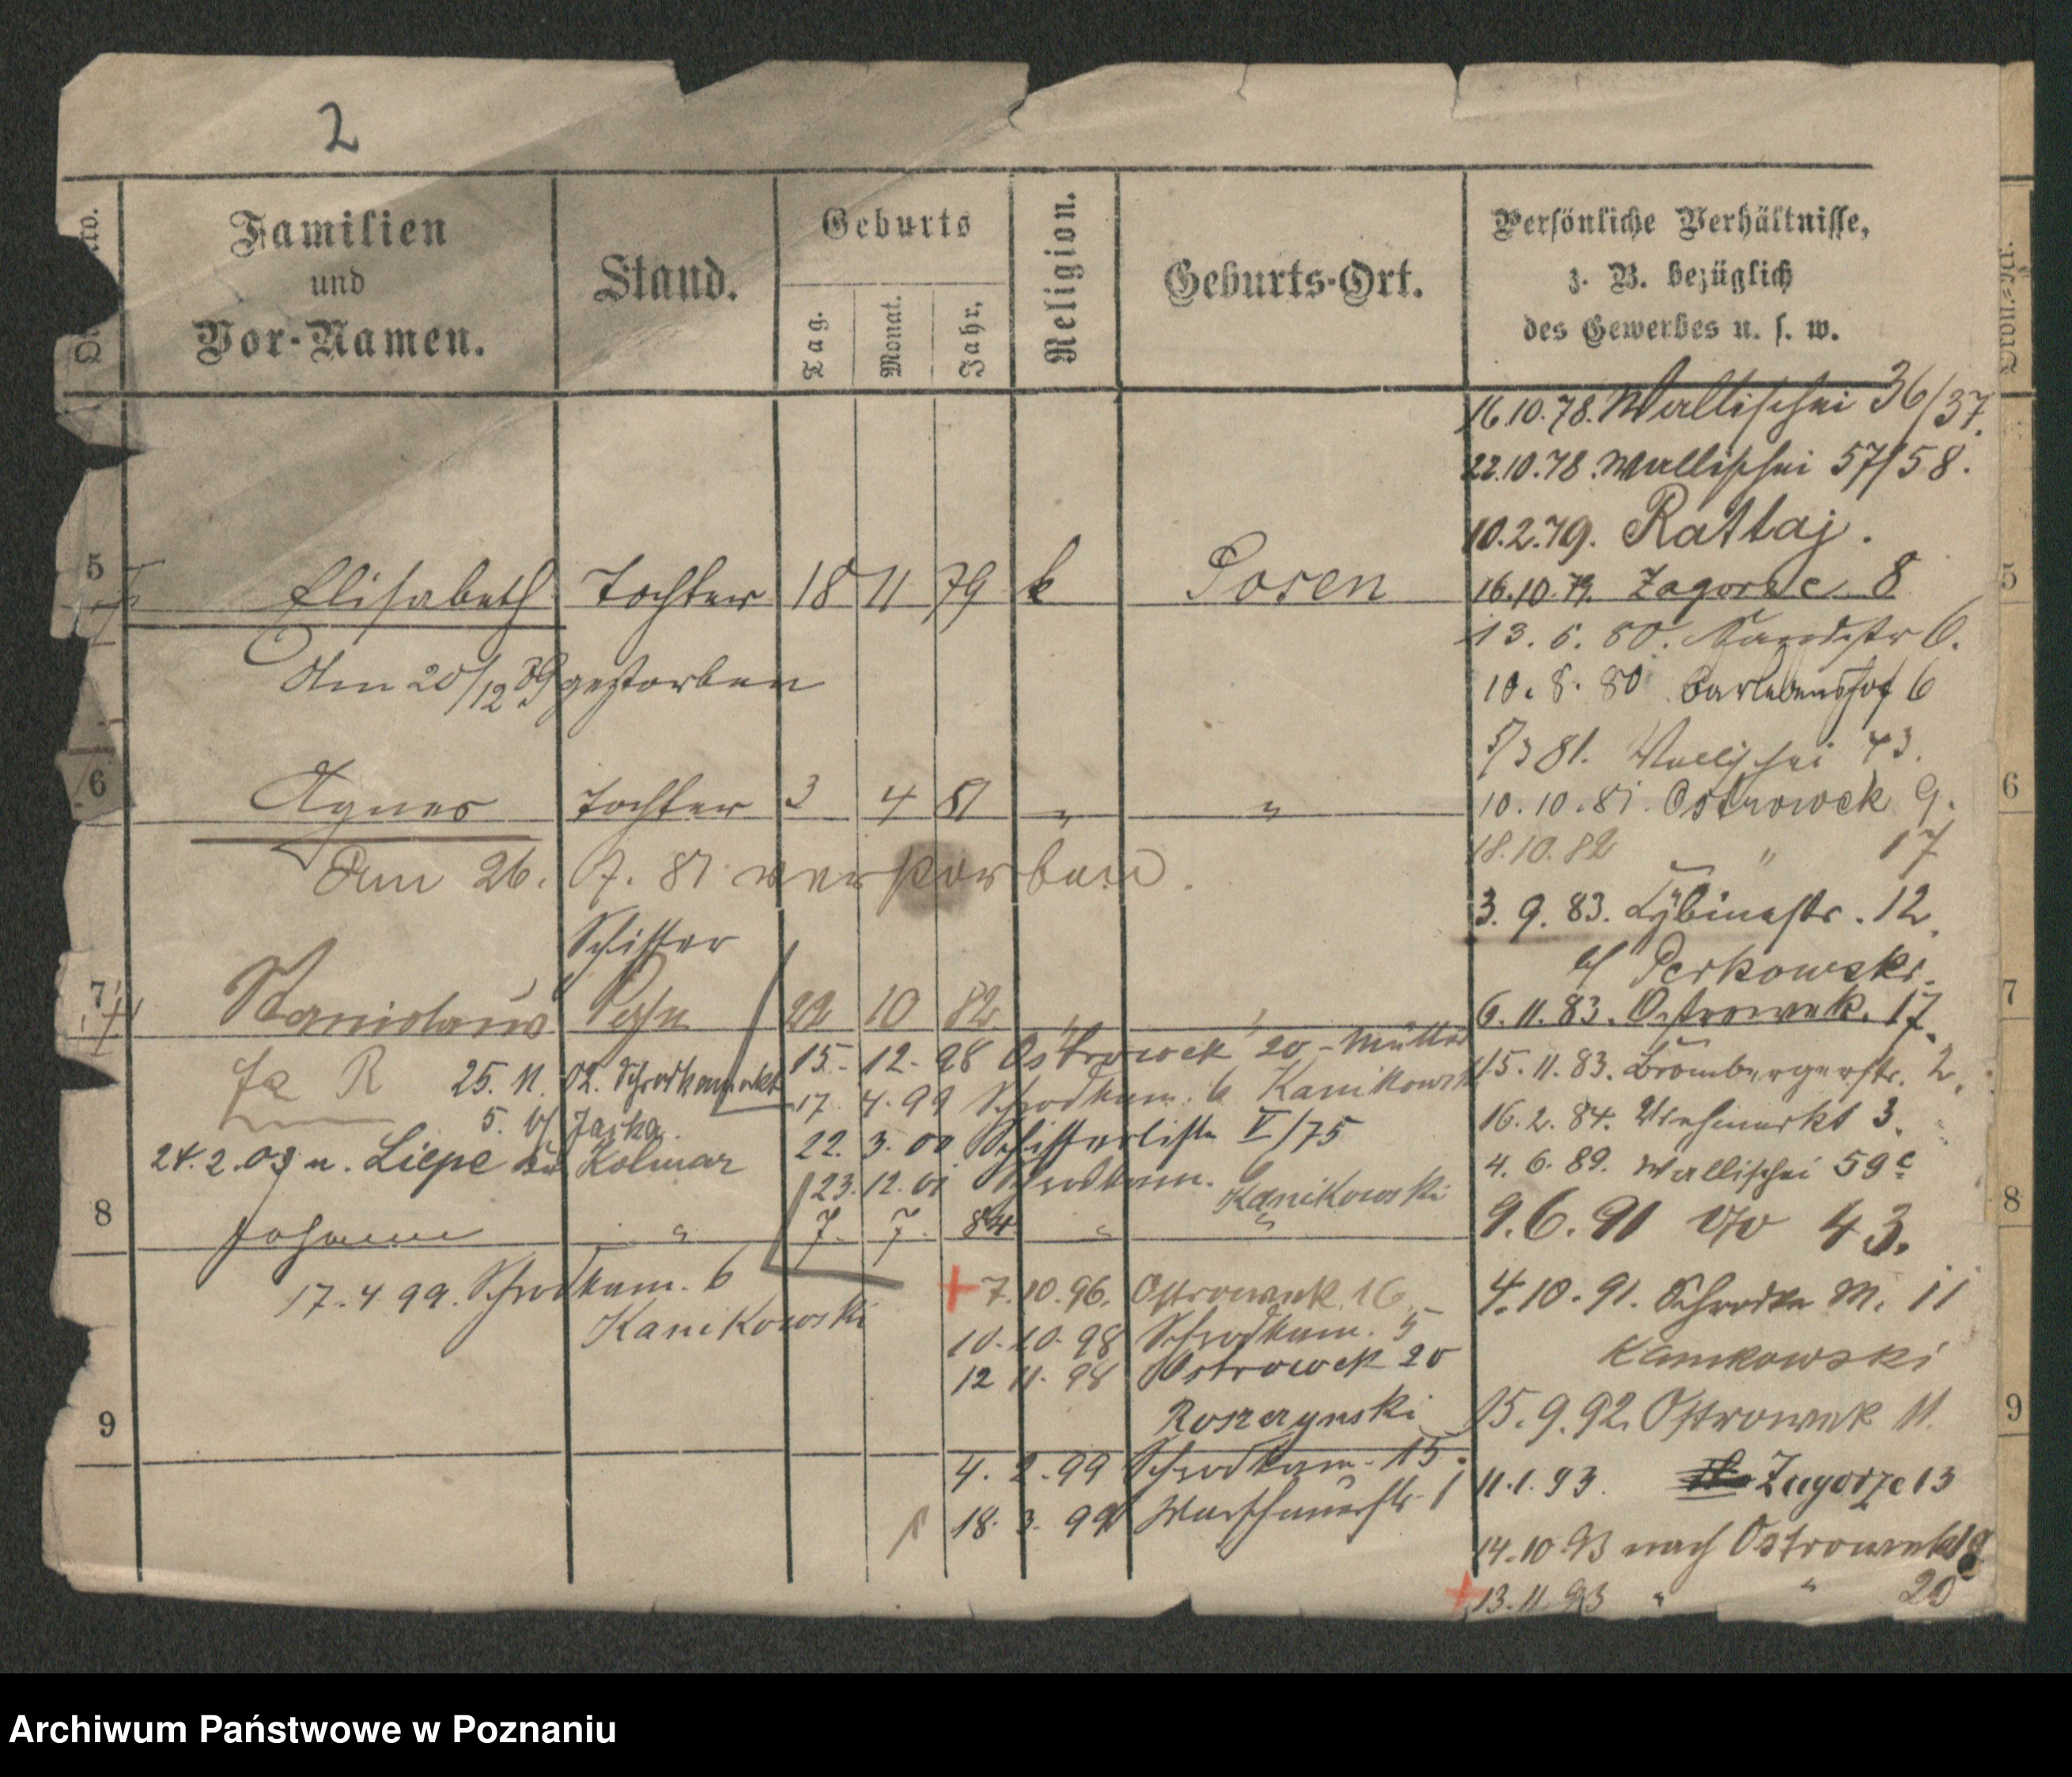 2
Familien
und
Vor-Namen.
Stand.
Geburts
Tag.
Monat.
Jahr.
Religion.
Geburts-Ort.
Persönliche Verhältnisse,
z. B. bezüglich
des Gewerbes u. s. w.
16.10.78. Wallischei 36/37.
22.10.78. Wallischei 57/58.
10.2.79. Rattaj.
5 Elisabeth Tochter 18 11 79 k Posen
16.10.79. Zagorze 8
Am 20/12 89 gestorben
13. 5. 80. Sandstr 6.
10. 8. 80 Barlebenshof 6
5/3 81. Wallischei 43.
6 Agnes Tochter 3 4 81 " "
10.10.81. Ostrowek 9.
Am 26. 7. 81 verstorben.
18.10.82 " 17
3. 9. 83. Cybinastr. 12.
b/ Perkowski.
Schiffer
7 Stanislaus Sohn 22 10 82 " "
6.11.83. Ostrowek. 17.
15. 12. 98 Ostrowek 20 - Mutter
25. 11. 02. Schrodkamarkt
5. b/ Jaska.
17. 4. 99 Schrodkam. 6 Kanikowski
15.11.83. Brombergerstr. 2.
22. 3. 00 Schifferliste V/75
16.2.84. Viehmarkt 3.
24.2.03 n. Liepe Kolmar
23. 12. 01 Schrodkam. 6
Kanikowski
4. 6. 89. Wallischei 59c
8 Johann " 7. 7. 84 " "
9.6.91 43.
17. 4 99. Schrodkam. 6
Kanikowski
+ 7.10.96. Ostrowek 16.
4.10.91. Schrodka M. 11
Kanikowski
10.10.98 Schrodkam. 5
12 11. 98 Ostrowek 20
Roszczynski
9
15.9.92. Ostrowek 11.
4. 2. 99 Schrodkam. 15.
11.1.93. Zagorze 13
18. 3. 99 Warschauerstr. 1
14.10.93 nach Ostrowek 18
+ 13.11.93 " " 20
5
6
7
8
9
Archiwum Państwowe w Poznaniu